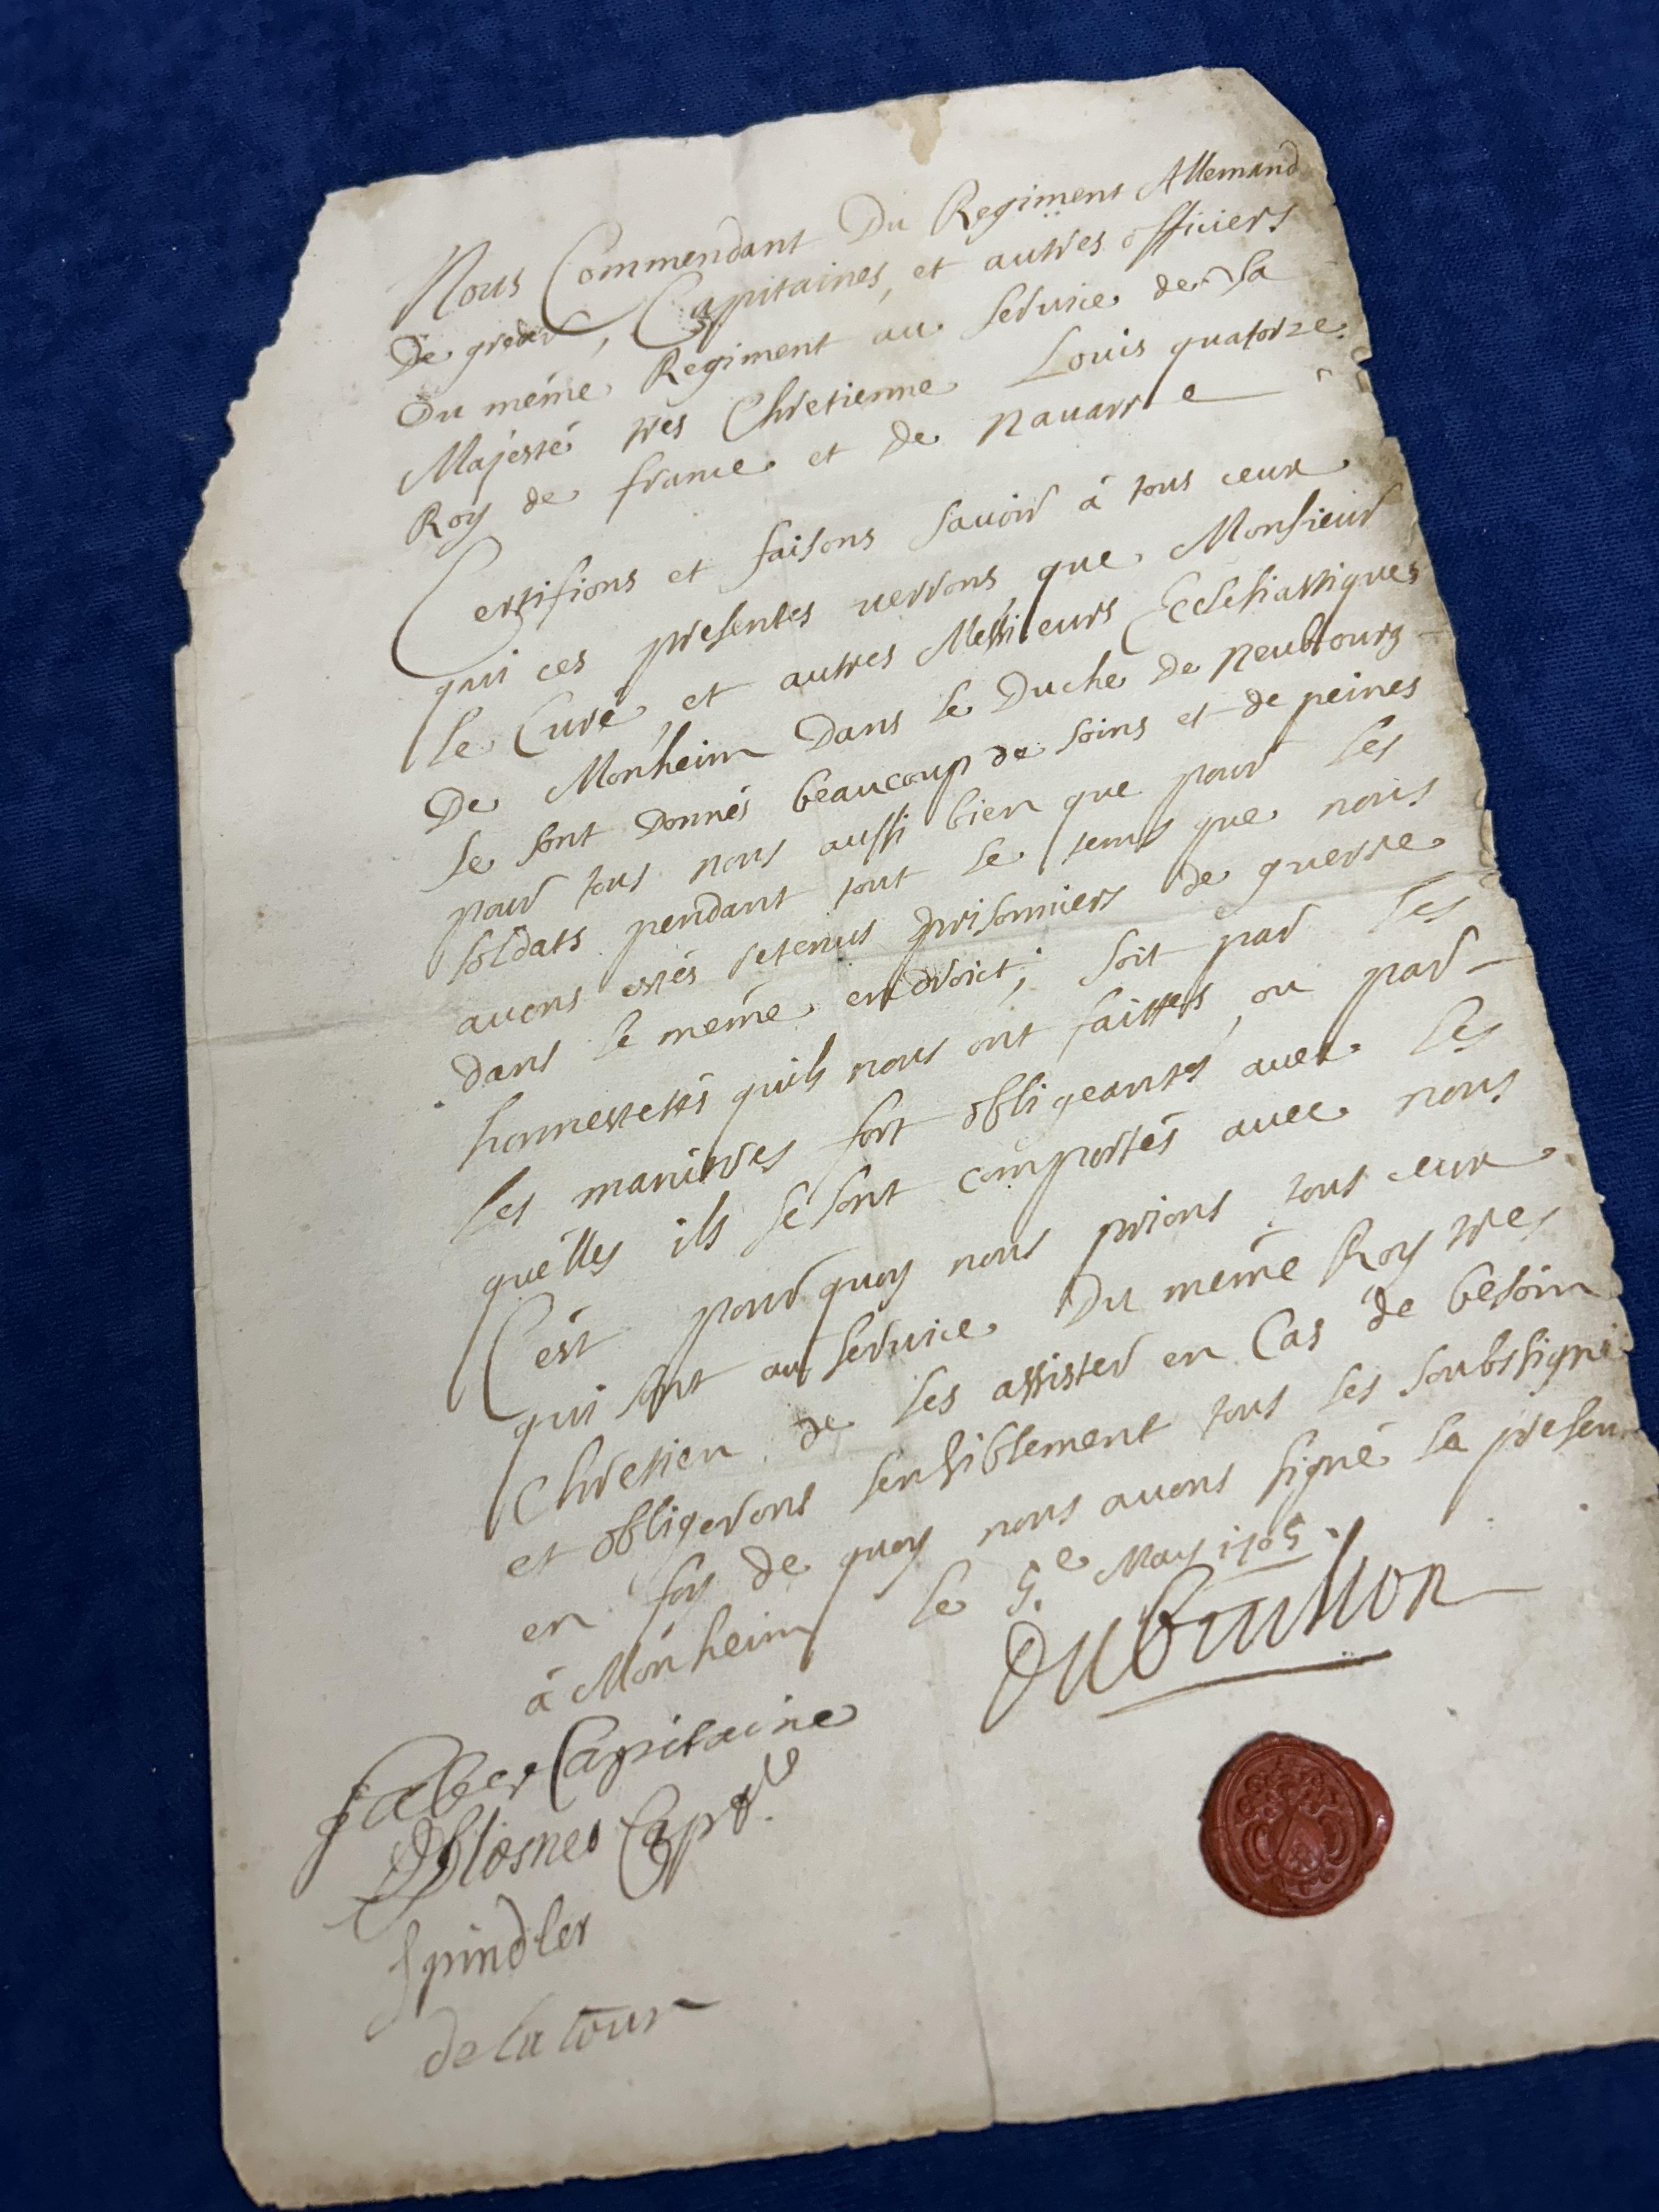 Nous Commendant Du Regiment Allemand
De greder, Capitaines, et autres officiers
Du méme Regiment au Service de Sa
Majésté tres Chretienne Louis quatorze
Roy de france et de Navarre
Certifions et faisons savoir à tous ceux
qui ces presentes verrons, que Monsieur
le Curé, et autres Messieurs Eclesiastiques
De Monheim Dans le Duche De Neubourg
se sont Donnés beaucoup de soins et de peines
pour tous nous aussi bien que pour les
soldats pendant tout le tems que nous
avons estés retenus prisonniers de guerre
dans le méme endroict; soit par les
honnestetés quils nous ont faittes, ou par
les manieres fort obligeantes avec les
quélles ils se sont comportés avec nous
C'est pour quoy nous prions tous ceux
qui sont au service Du méme Roy tres
Chretien de les assister en Cas de besoin
et obligerons sensiblement tous les soubssigné
en foy de quoy nous avons signé la presen
à Monheim le 5.e May 1705.
Du bouillon
faber Capitaine
Capt
Spindler
de la tour